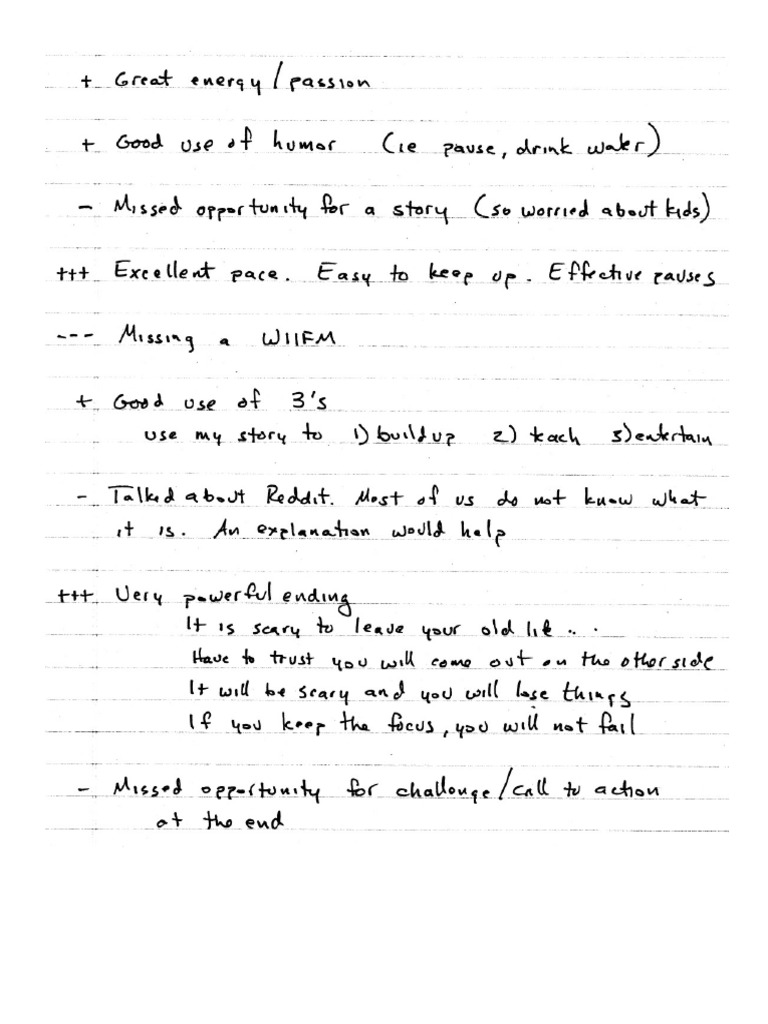 + Great energy/passion
+ Good use of humor (ie pause, drink water)
- Missed opportunity for a story (so worried about kids)
+++ Excellent pace. Easy to keep up. Effective pauses
--- Missing a WIIFM
+ Good use of 3's
use my story to 1) build up 2) teach 3) entertain
- Talked about Reddit. Most of us do not know what
it is. An explanation would help
+++ Very powerful ending
It is scary to leave your old life ...
Have to trust you will come out on the other side
It will be scary and you will lose things
If you keep the focus, you will not fail
- Missed opportunity for challenge/call to action
at the end